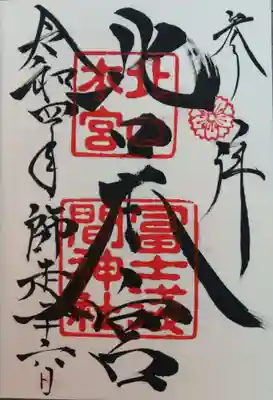 参拝
北口本宮
北口
本宮
冨士浅
間神社
令和四年師走二十六日